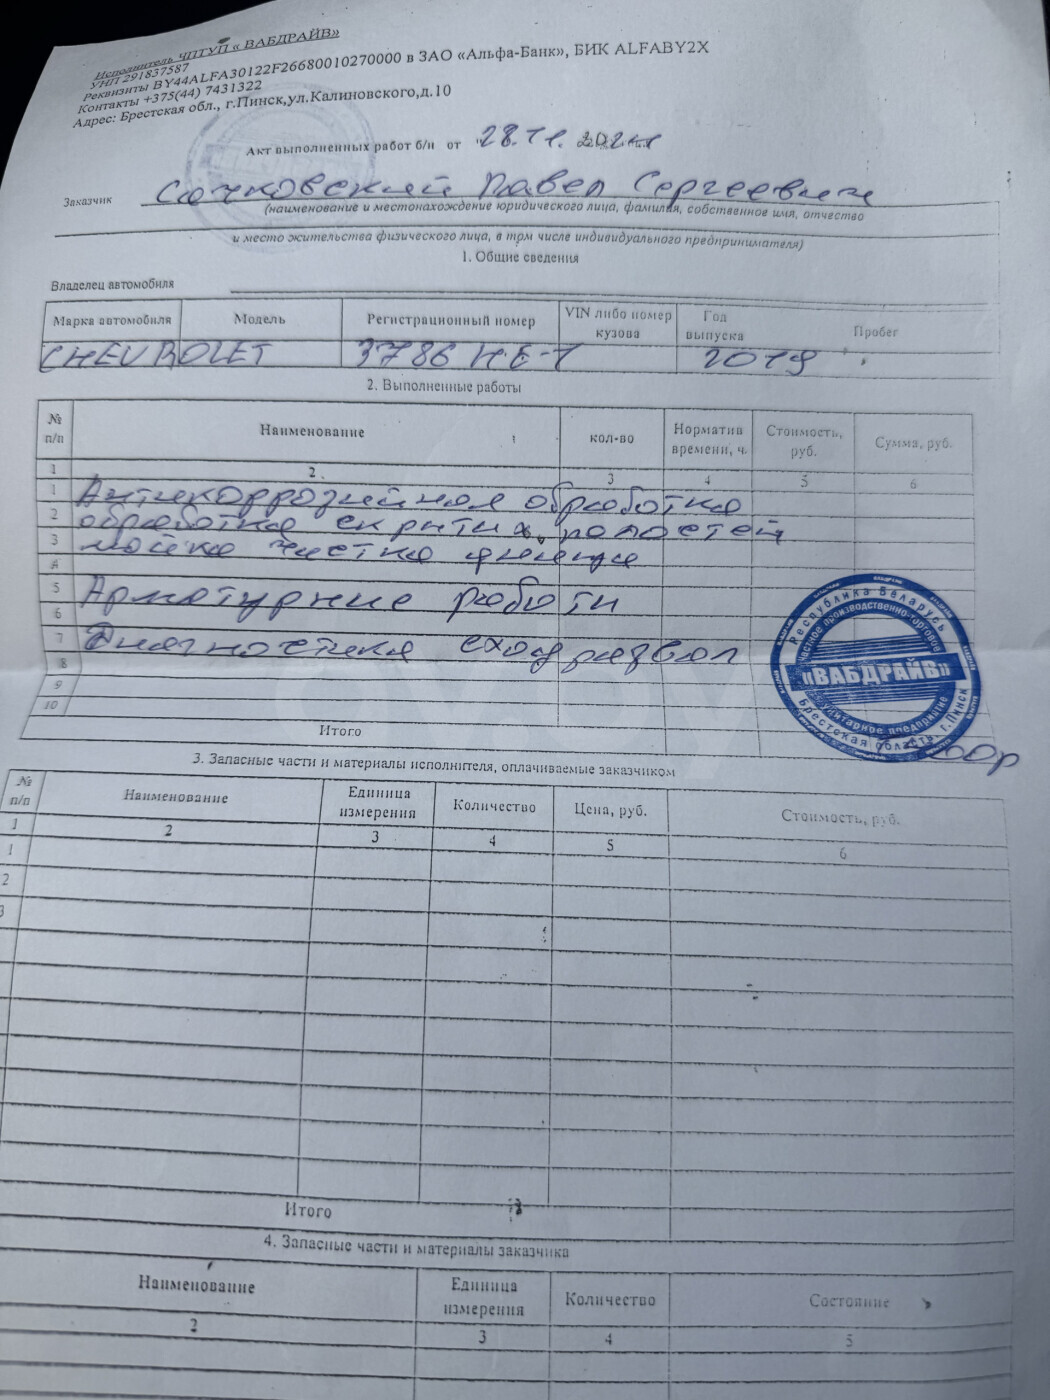 Исполнитель ЧПТУП « ВАБДРАЙВ»
УНП 291837587
Реквизиты BY44ALFA30122F26680010270000 в ЗАО «Альфа-Банк», БИК ALFABY2X
Контакты +375(44) 7431322
Адрес: Брестская обл., г.Пинск,ул.Калиновского,д.10
Акт выполненных работ б/н от 28.11.2024
Заказчик Сачковский Павел Сергеевич
(наименование и местонахождение юридического лица, фамилия, собственное имя, отчество
и место жительства физического лица, в трм числе индивидуального предпринимателя)
1. Общие сведения
Владелец автомобиля
Марка автомобиля Модель Регистрационный номер VIN либо номер кузова Год выпуска Пробег
CHEVROLET 3786 НЕ-1 2019
2. Выполненные работы
№ п/п Наименование кол-во Норматив времени, ч. Стоимость, руб. Сумма, руб.
1 2 3 4 5 6
1 Антикоррозийная обработка
2 обработка скрытых полостей
3 мойка чистка днища
4
5 Арматурные работы
6
7 Диагностика сход развал
8
9
10
Итого
Республика Беларусь
частное производственно-торговое
«ВАБДРАЙВ»
унитарное предприятие
Брестская область, г. Пинск
3. Запасные части и материалы исполнителя, оплачиваемые заказчиком
№ п/п Наименование Единица измерения Количество Цена, руб. Стоимость, руб.
1 2 3 4 5 6
1
2
3
Итого
4. Запасные части и материалы заказчика
Наименование Единица измерения Количество Состояние
2 3 4 5